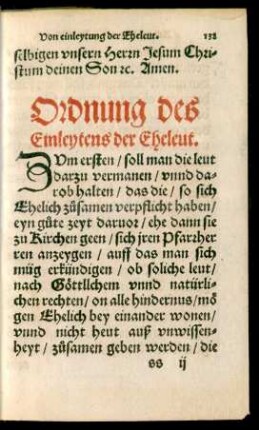 Von einleytung der Eheleut. 152
selbigen vnsern Herrn Jesum Chri-
stum deinen Son ꝛc. Amen.
Ordnung des
Einleytens der Eheleut.
ZVm ersten / soll man die leut
darzu vermanen / vnnd da-
rob halten / das die / so sich
Ehelich zůsamen verpflicht haben /
eyn gůte zeyt daruor / ehe dann sie
zu Kirchen geen / sich jren Pfarzher
ren anzeygen / auff das man sich
müg erkündigen / ob soliche leut /
nach Göttlichem vnnd natürli-
chen rechten / on alle hindernus / mö
gen Ehelich bey einander wonen /
vnnd nicht heut auß vnwissen-
heyt / zůsamen geben werden / die
ss ij